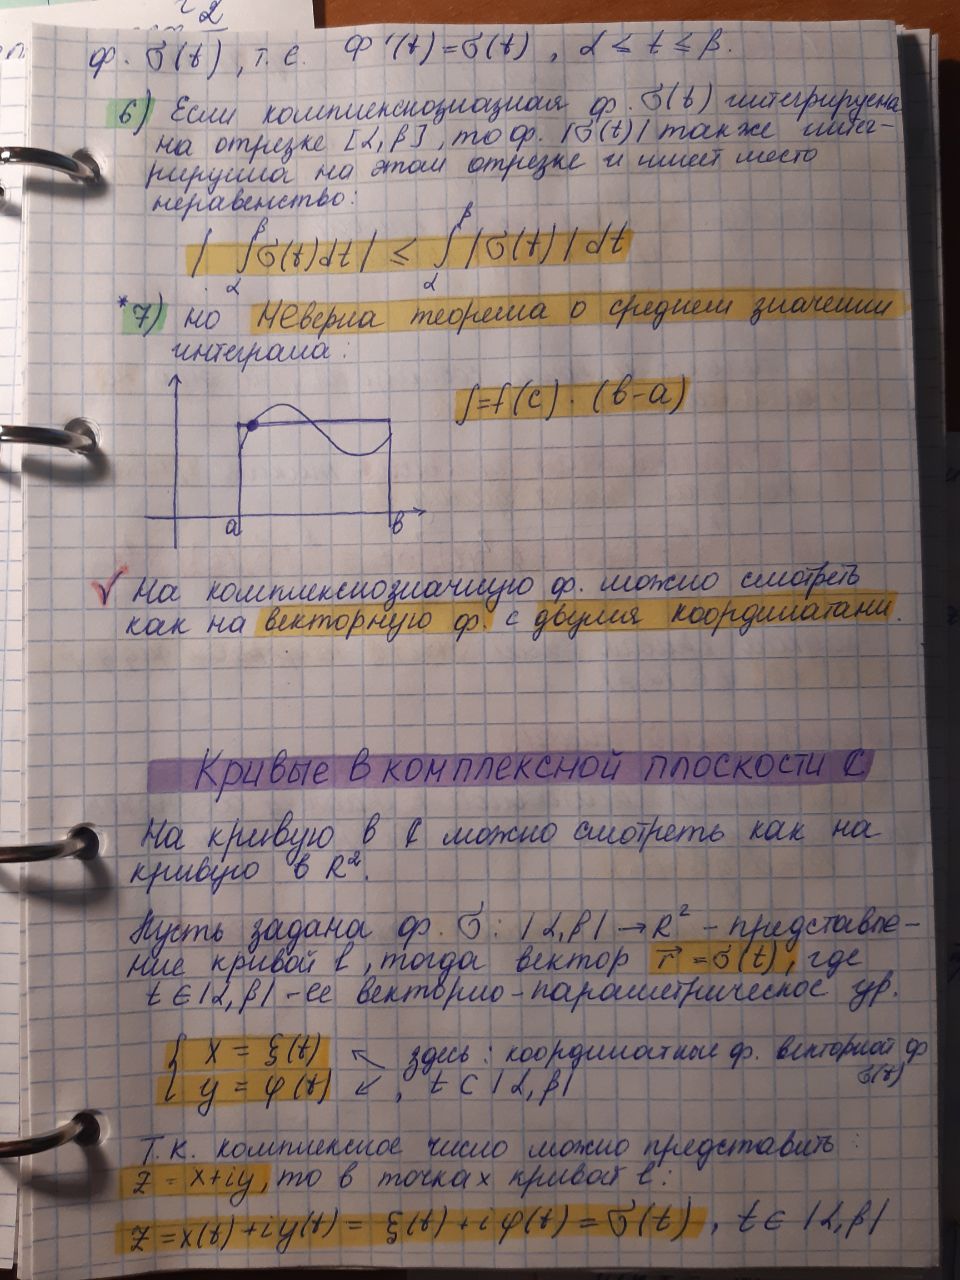 ф. σ(t), т.е. Ф'(t) = σ(t), α ≤ t ≤ β.
6) Если комплекснозначная ф. σ(t) интегрируема
на отрезке [α, β], то ф. |σ(t)| также интег-
рируема на этом отрезке и имеет место
неравенство:
| ∫αβ σ(t)dt | ≤ ∫αβ |σ(t)| dt
*7) но НЕверна теорема о среднем значении
интеграла:
∫=f(c) · (b-a)
a b
На комплекснозначную ф. можно смотреть
как на векторную ф. с двумя координатами.
Кривые в комплексной плоскости ℂ
На кривую в ℂ можно смотреть как на
кривую в R².
Пусть задана ф. σ: |α,β| → R² - представле-
ние кривой ℓ, тогда вектор r⃗ = σ(t), где
t ∈ |α,β| - ее векторно-параметрическое ур.
{ x = ξ(t) ↖ здесь: координатные ф. векторной ф σ(t)
{ y = φ(t) ↙ , t ∈ |α,β|
Т.к. комплексное число можно представить:
z = x+iy, то в точках кривой ℓ:
z = x(t) + iy(t) = ξ(t) + iφ(t) = σ(t), t ∈ |α,β|